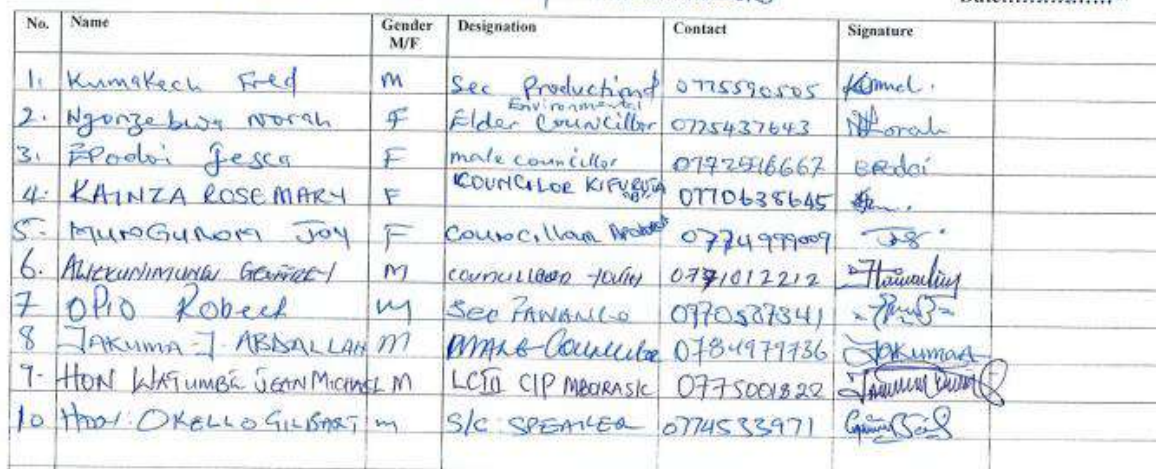 Date..................
No. Name Gender M/F Designation Contact Signature
1. Kumakech Fred M Sec Production 0775590505
Environmental
2. Ngonzebwa Norah F Elder Councillor 0775437643 Norah
3. EPodoi Jesca F male councillor 0772596667 Epodoi
4. KAINZA ROSEMARY F COUNCILOR 0770638645
5. Joy F Councillor 0774999009
6. M councillor youth 0771012212
7 OPIO Robert M Sec 0770537341
8 JAKUMA J. ABDALLAH M MALE Councillor 0784979736 JAKUMAA
9. HON WATUMBE JEAN MICHAEL M LCIII C/P 0775001822
10 Hon: OKELLO GILBART m S/C SPEAKER 0774533971